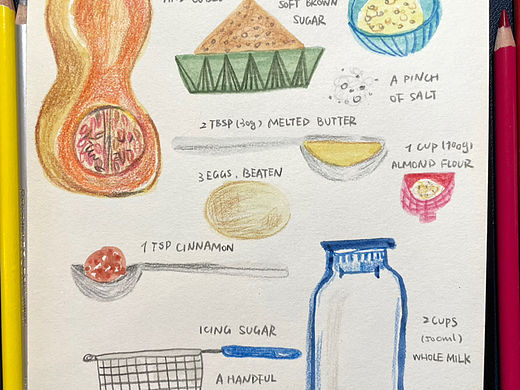 SOFT BROWN
SUGAR
A PINCH
OF SALT
2 TBSP (30g) MELTED BUTTER
1 CUP (100g)
ALMOND FLOUR
3 EGGS, BEATEN
1 TSP CINNAMON
2 CUPS
(500ml)
WHOLE MILK
ICING SUGAR
A HANDFUL